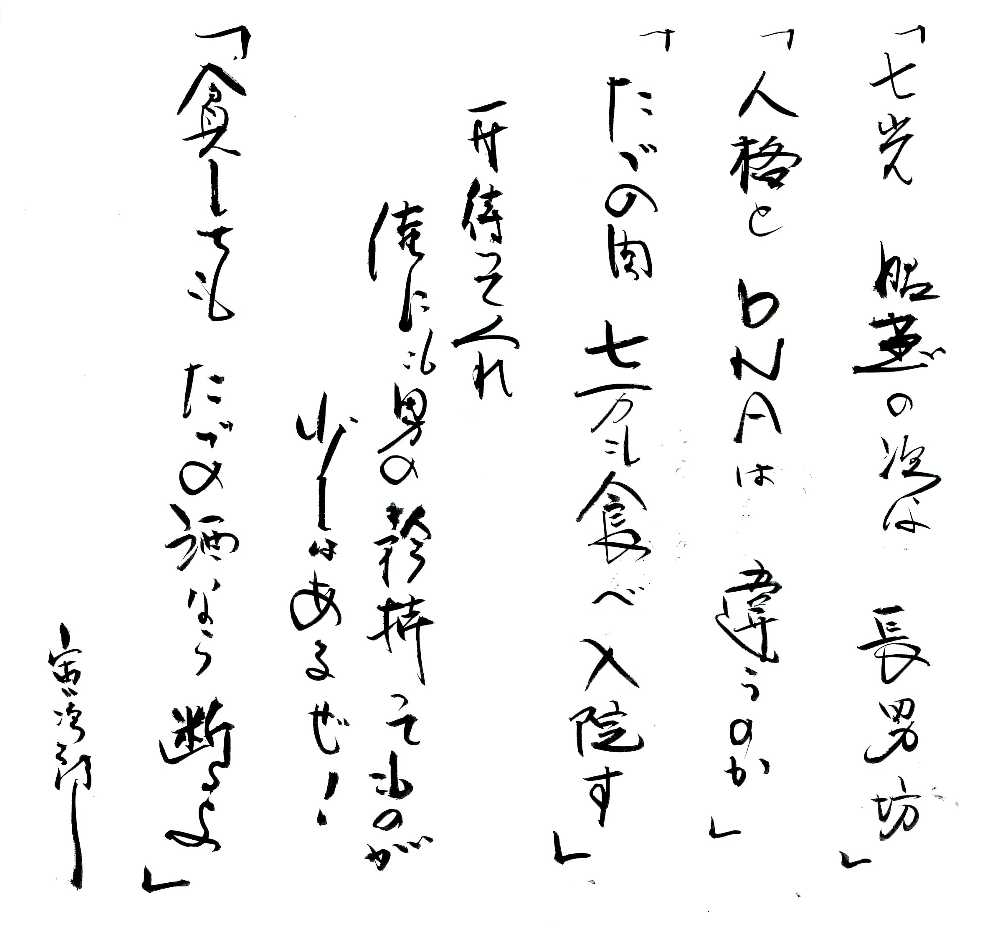 「七光 昭恵の次は 長男坊」
「人格と DNAは 違うのか」
「たゞの肉 七万も食べ 入院す」
一寸待ってくれ
俺にも男の矜持ってものが
少しはあるぜ!
「貧しても たゞの酒なら 断るよ」
寅次郎